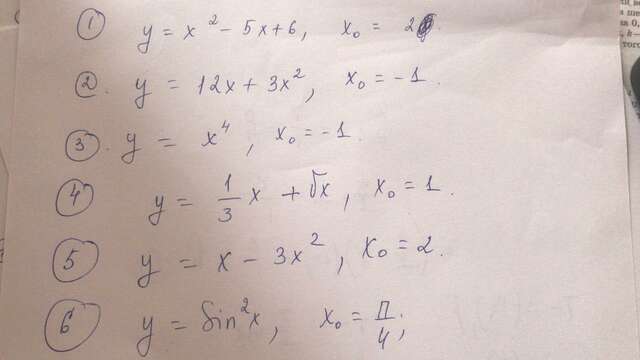 ① y = x² - 5x + 6, x₀ = 2.
②. y = 12x + 3x², x₀ = -1.
③. y = x⁴, x₀ = -1.
④ y = 1/3 x + √x, x₀ = 1.
⑤ y = x - 3x², x₀ = 2.
⑥ y = Sin²x, x₀ = П/4;